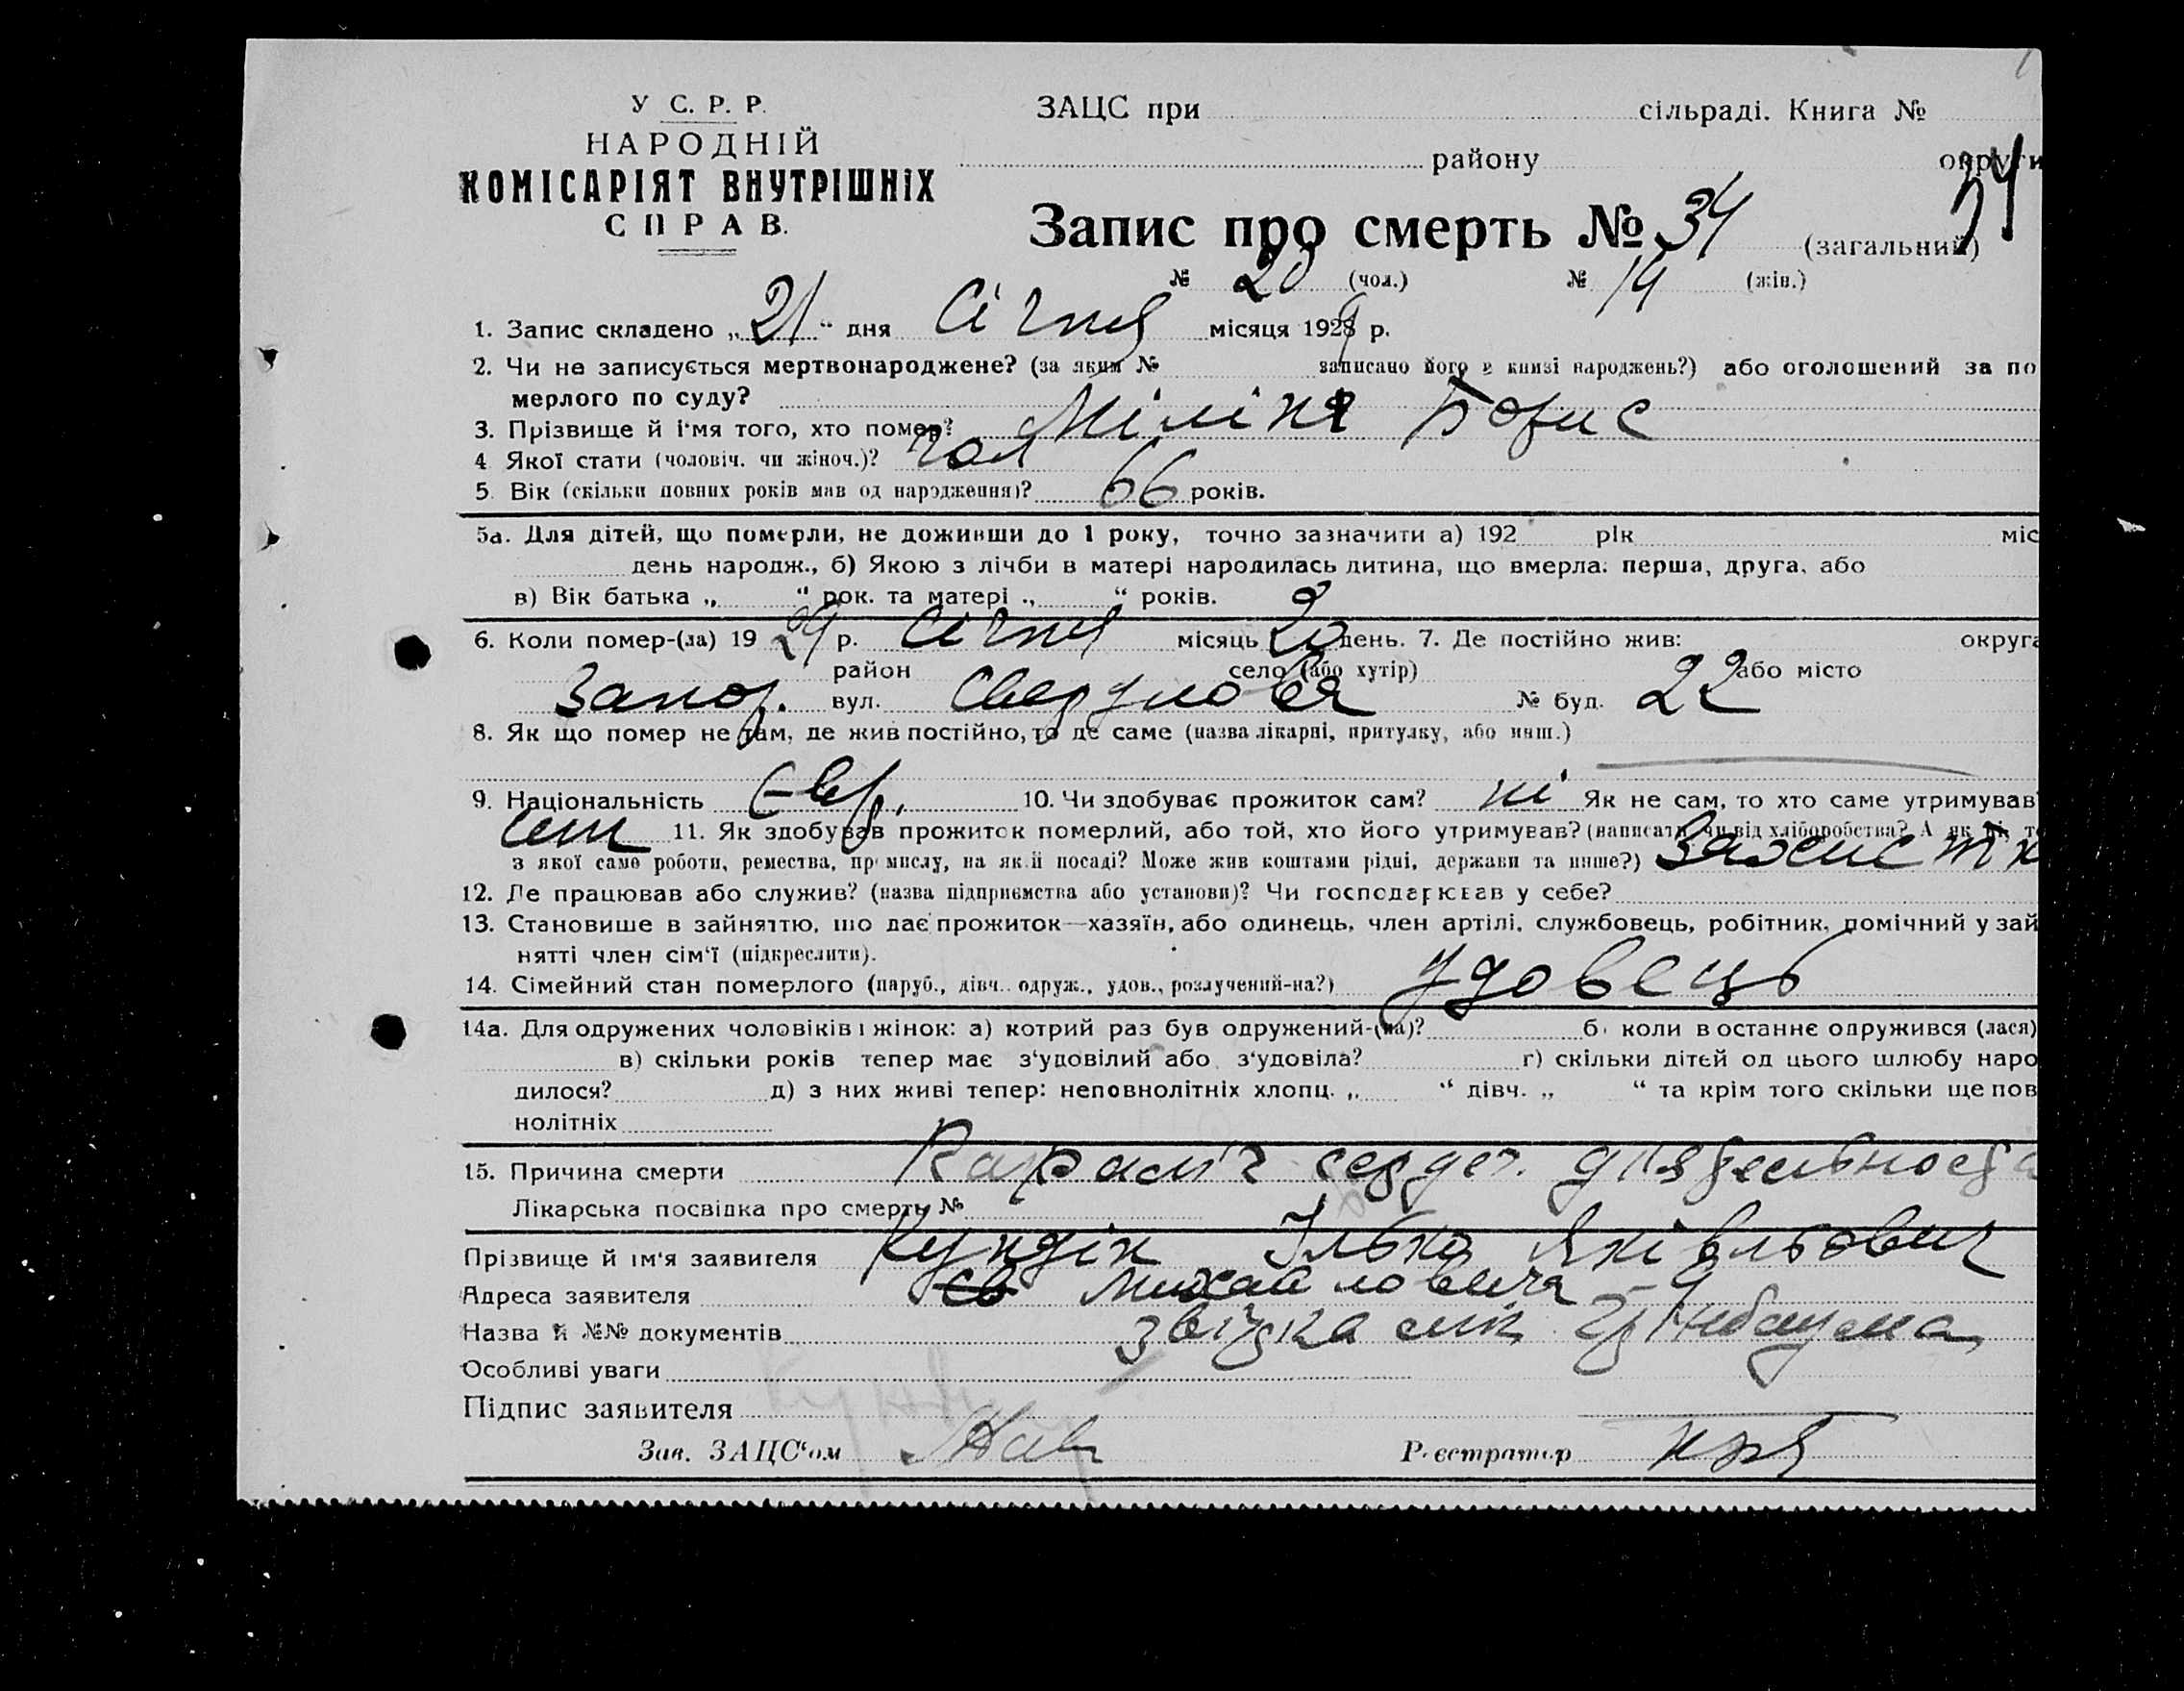 У С. Р. Р.
НАРОДНІЙ
КОМІСАРІЯТ ВНУТРІШНІХ
СПРАВ.
ЗАЦС при сільраді. Книга №
району округи
Запис про смерть № 34 (загальний) 34
№ 20 (чол.) № 14 (жін.)
1. Запис складено „21“ дня Січня місяця 1929 р.
2. Чи не записується мертвонароджене? (за яким № записано його в книзі народжень?) або оголошений за по
мерлого по суду?
3. Прізвище й і'мя того, хто помер? Борис
4 Якої стати (чоловіч. чи жіноч.)? Чол
5. Вік (скільки повних років мав од народження)? 66 років.
5а. Для дітей, що померли, не доживши до 1 року, точно зазначити а) 192 рік міс
день народж., б) Якою з лічби в матері народилась дитина, що вмерла: перша, друга, або
в) Вік батька „ “ рок. та матері „ “ років.
6. Коли помер-(ла) 19 29 р. Січня місяць 20 день. 7. Де постійно жив: округа
район село (або хутір) або місто
Запор. вул. Свердлова № буд. 22
8. Як що помер не там, де жив постійно, то де саме (назва лікарні, притулку, або инш.)
9. Національність Євр. 10. Чи здобуває прожиток сам? ні Як не сам, то хто саме утримував
син 11. Як здобував прожиток померлий, або той, хто його утримував? (написати, чи від хліборобства? А як ні, то
з якої саме роботи, ремества, промислу, на якій посаді? Може жив коштами рідні, держави та инше?)
12. Де працював або служив? (назва підприємства або установи)? Чи господарював у себе?
13. Становище в зайняттю, що дає прожиток—хазяїн, або одинець, член артілі, службовець, робітник, помічний у зай
нятті член сім'ї (підкреслити).
14. Сімейний стан померлого (паруб., дівч.. одруж., удов., розлучений-на?) Удовець
14а. Для одружених чоловіків і жінок: а) котрий раз був одружений-(на)? б) коли востаннє одружився (лася)
в) скільки років тепер має з'удовілий або з'удовіла? г) скільки дітей од цього шлюбу наро
дилося? д) з них живі тепер: неповнолітніх хлопц. „ “ дівч. „ “ та крім того скільки ще пов
нолітніх
15. Причина смерти Параліч сердеч.
Лікарська посвідка про смерть №
Прізвище й ім'я заявителя Кундін Ілько
Адреса заявителя Михайловича 9
Назва й №№ документів
Особливі уваги
Підпис заявителя
Зав. ЗАЦС'ом Реєстратор